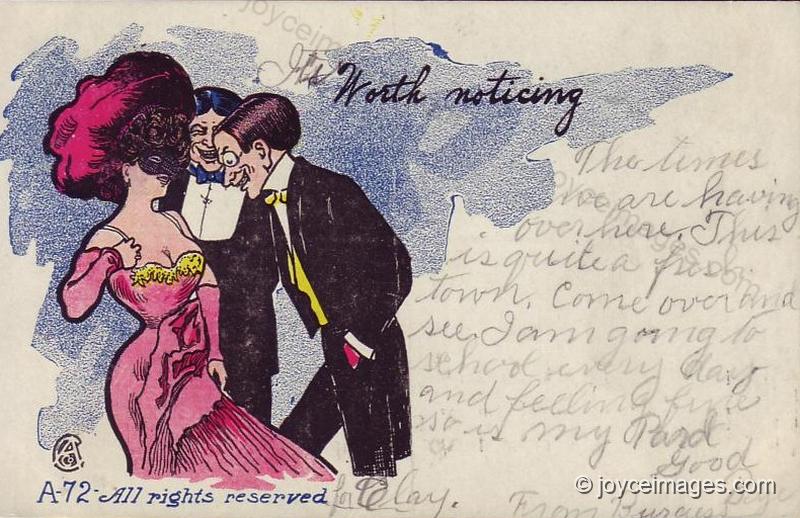 It's Worth noticing
The times
we are having
over here. This
is quite a
town. Come over and
see. I am going to
school every day
and feeling fine
so is my Pard
Good
bye
From Burgess
for Clay.
A-72-All rights reserved
© joyceimages.com
joyceimages.com
joyceimages.com